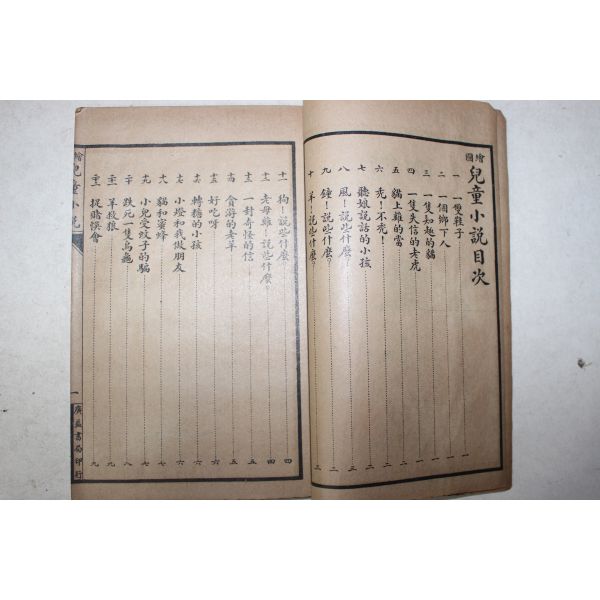 繪圖兒童小說目次
一 一雙鞋子 一
二 一個鄉下人 一
三 一隻知趣的貓 一
四 一隻失信的老虎 一
五 貓上雞的當 二
六 禿！不禿！ 二
七 聽娘說話的小孩 二
八 風！說些什麼？ 三
九 鐘！說些什麼？ 三
十 羊！說些什麼？ 三
十一 狗！說些什麼？ 四
十二 老母雞！說些什麼？ 四
十三 一封奇怪的信 五
十四 貪游的老羊 五
十五 好吃呀 五
十六 轉糖的小孩 六
十七 小燈和我做朋友 六
十八 貓和蜜蜂 七
十九 小兒受蚊子的騙 七
二十 跌死一隻烏龜 八
二十一 羊救狼 九
二十二 捉賭悞會 九
繪圖兒童小說
一
廣益書局印行